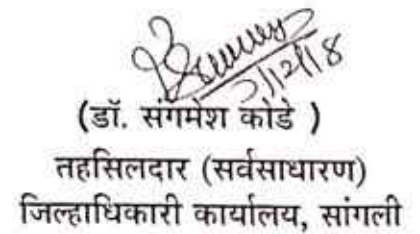 7/12/18
(डॉ. संगमेश कोडे )
तहसिलदार (सर्वसाधारण)
जिल्हाधिकारी कार्यालय, सांगली